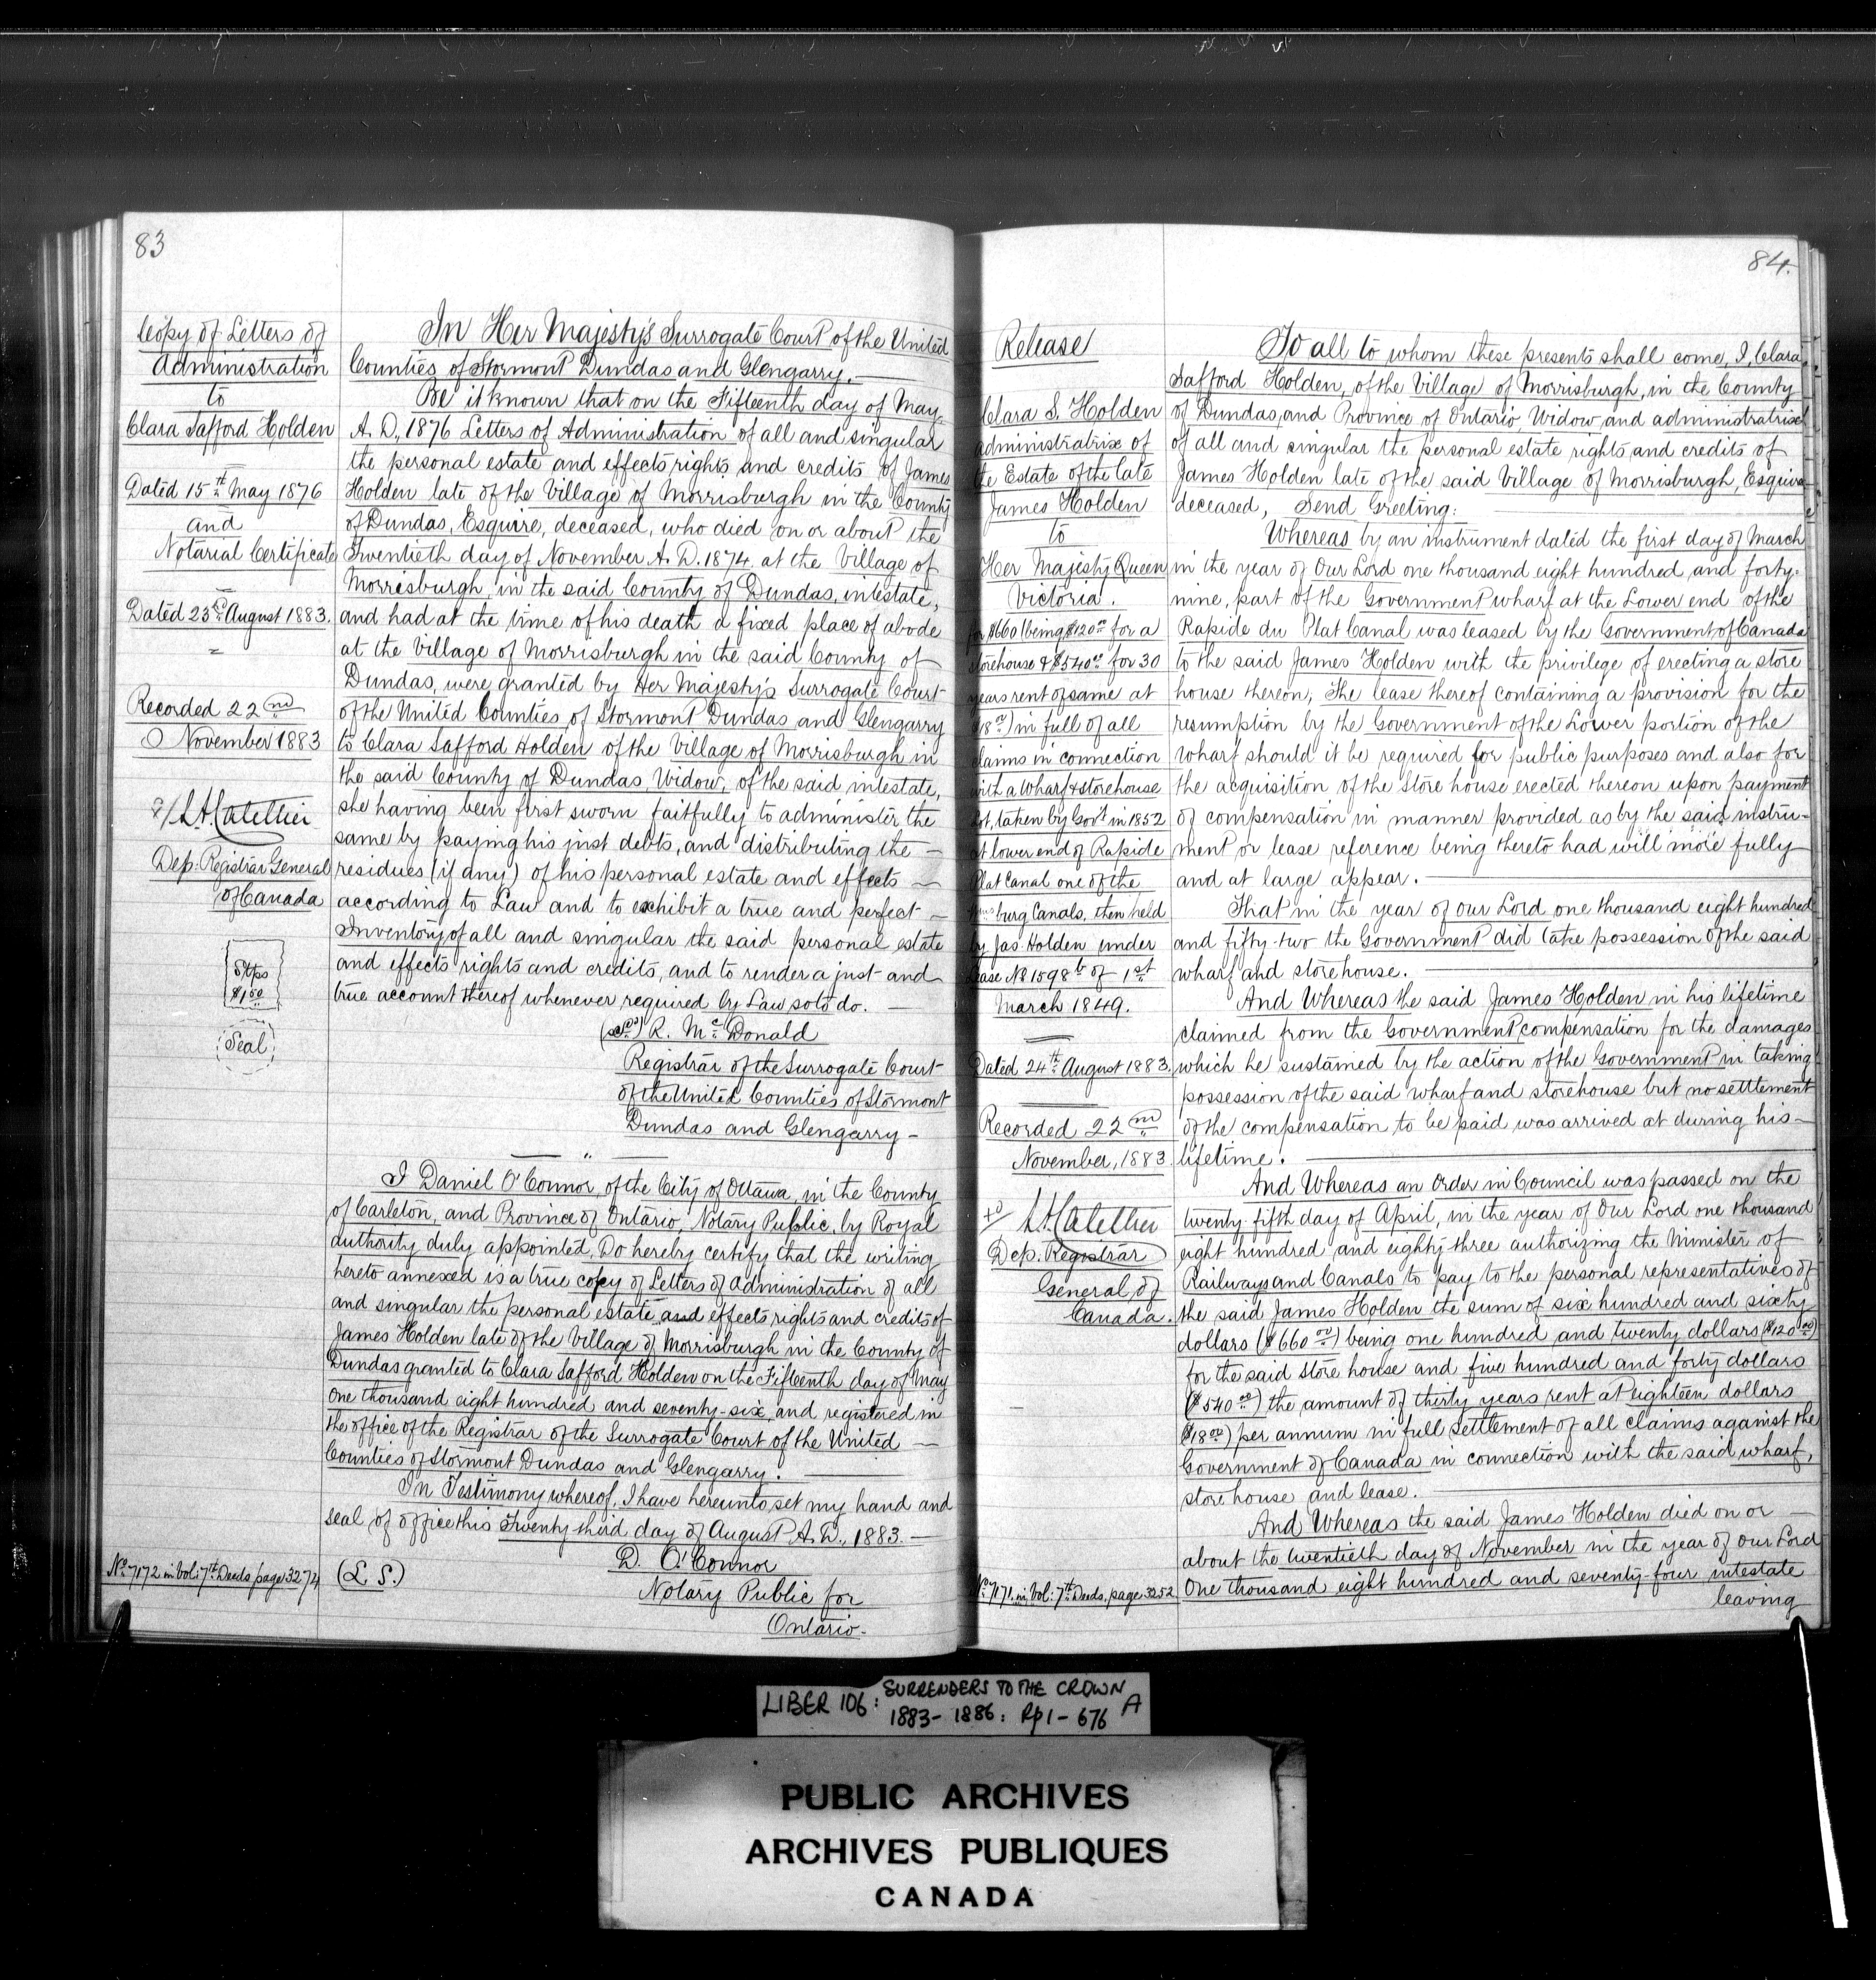 83
Copy of Letters of
Administration
to
Clara Safford Holden
Dated 15th May 1876
and
Notarial Certificate
Dated 23rd August 1883.
Recorded 22nd
November 1883
L.A. Catellier
Dep. Registrar General
of Canada
Stps
$1.50
Seal
No. 7172 in Vol: 7th Deeds, page 3274
In Her Majesty's Surrogate Court of the United
Counties of Stormont Dundas and Glengarry. —
Be it known that on the Fifteenth day of May,
A. D., 1876 Letters of Administration of all and singular
the personal estate and effects rights and credits of James
Holden late of the Village of Morrisburgh in the County
of Dundas, Esquire, deceased, who died on or about the
Twentieth day of November A. D. 1874. at the Village of
Morrisburgh, in the said County of Dundas, intestate,
and had at the time of his death a fixed place of abode
at the Village of Morrisburgh in the said County of
Dundas, were granted by Her Majesty's Surrogate Court
of the United Counties of Stormont Dundas and Glengarry
to Clara Safford Holden of the Village of Morrisburgh in
the said County of Dundas, Widow, of the said intestate,
she having been first sworn faitfully to administer the
same by paying his just debts, and distributing the —
residues (if any) of his personal estate and effects —
according to Law and to exhibit a true and perfect —
Inventory of all and singular the said personal estate
and effects rights and credits, and to render a just and
true account thereof whenever required by Law so to do. —
R. McDonald
Registrar of the Surrogate Court
of the United Counties of Stormont
Dundas and Glengarry —
I Daniel O'Connor, of the City of Ottawa, in the County
of Carleton, and Province of Ontario, Notary Public, by Royal
authority duly appointed, Do hereby certify that the writing
hereto annexed is a true copy of Letters of Administration of all
and singular the personal estate and effects rights and credits of
James Holden late of the Village of Morrisburgh in the County of
Dundas granted to Clara Safford Holden on the Fifteenth day of May
one thousand eight hundred and seventy-six, and registered in
the office of the Registrar of the Surrogate Court of the United —
Counties of Stormont Dundas and Glengarry. —
In Testimony whereof, I have hereunto set my hand and
seal of office this Twenty third day of August A. D., 1883. —
(L. S.)
D. O'Connor
Notary Public for
Ontario.
84.
Release
Clara S. Holden
administratrix of
the Estate of the late
James Holden
to
Her Majesty Queen
Victoria.
for $660 (being $120.00 for a
storehouse & $540.00 for 30
years rent of same at
$18.00) in full of all
claims in connection
with a Wharf & storehouse
Lot, taken by Gov't in 1852
at lower end of Rapide
Plat Canal one of the
burg Canals, then held
by Jas. Holden under
Lease No 1598 of 1st
March 1849.
Dated 24th August 1883.
Recorded 22nd
November, 1883
L.A. Catellier
Dep. Registrar
General of
Canada.
No. 7171. in Vol: 7th Deeds, page 3252
To all to whom these presents shall come, I, Clara
Safford Holden, of the Village of Morrisburgh, in the County
of Dundas, and Province of Ontario, Widow, and administratrix
of all and singular the personal estate rights and credits of
James Holden late of the said Village of Morrisburgh, Esquire
deceased, Send Greeting:
Whereas by an instrument dated the first day of March
in the year of Our Lord one thousand eight hundred and forty-
nine, part of the Government wharf at the Lower end of the
Rapide du Plat Canal was leased by the Government of Canada
to the said James Holden with the privilege of erecting a store
house thereon, The lease thereof containing a provision for the
resumption by the Government of the Lower portion of the
wharf should it be required for public purposes and also for
the acquisition of the Store house erected thereon upon payment
of compensation in manner provided as by the said instru-
ment or lease reference being thereto had will more fully
and at large appear. —
That in the year of our Lord one thousand eight hundred
and fifty-two the Government did take possession of the said
wharf and storehouse. —
And Whereas the said James Holden in his lifetime
claimed from the Government, compensation for the damages
which he sustained by the action of the Government in taking
possession of the said wharf and storehouse but no settlement
of the compensation to be paid was arrived at during his —
lifetime. —
And Whereas an Order in Council was passed on the
twenty fifth day of April, in the year of Our Lord one thousand
eight hundred and eighty three authorizing the Minister of
Railways and Canals to pay to the personal representatives of
the said James Holden the sum of six hundred and sixty
dollars ($660.00) being one hundred and twenty dollars ($120.00)
for the said Store house and five hundred and forty dollars
($540.00) the amount of thirty years rent at eighteen dollars
($18.00) per annum in full settlement of all claims against the
Government of Canada in connection with the said wharf,
store house and lease. —
And Whereas the said James Holden died on or —
about the twentieth day of November in the year of our Lord
One thousand eight hundred and seventy-four intestate
leaving
LIBER 106: SURRENDERS TO THE CROWN A
1883-1886: Pp 1-676
PUBLIC ARCHIVES
ARCHIVES PUBLIQUES
CANADA